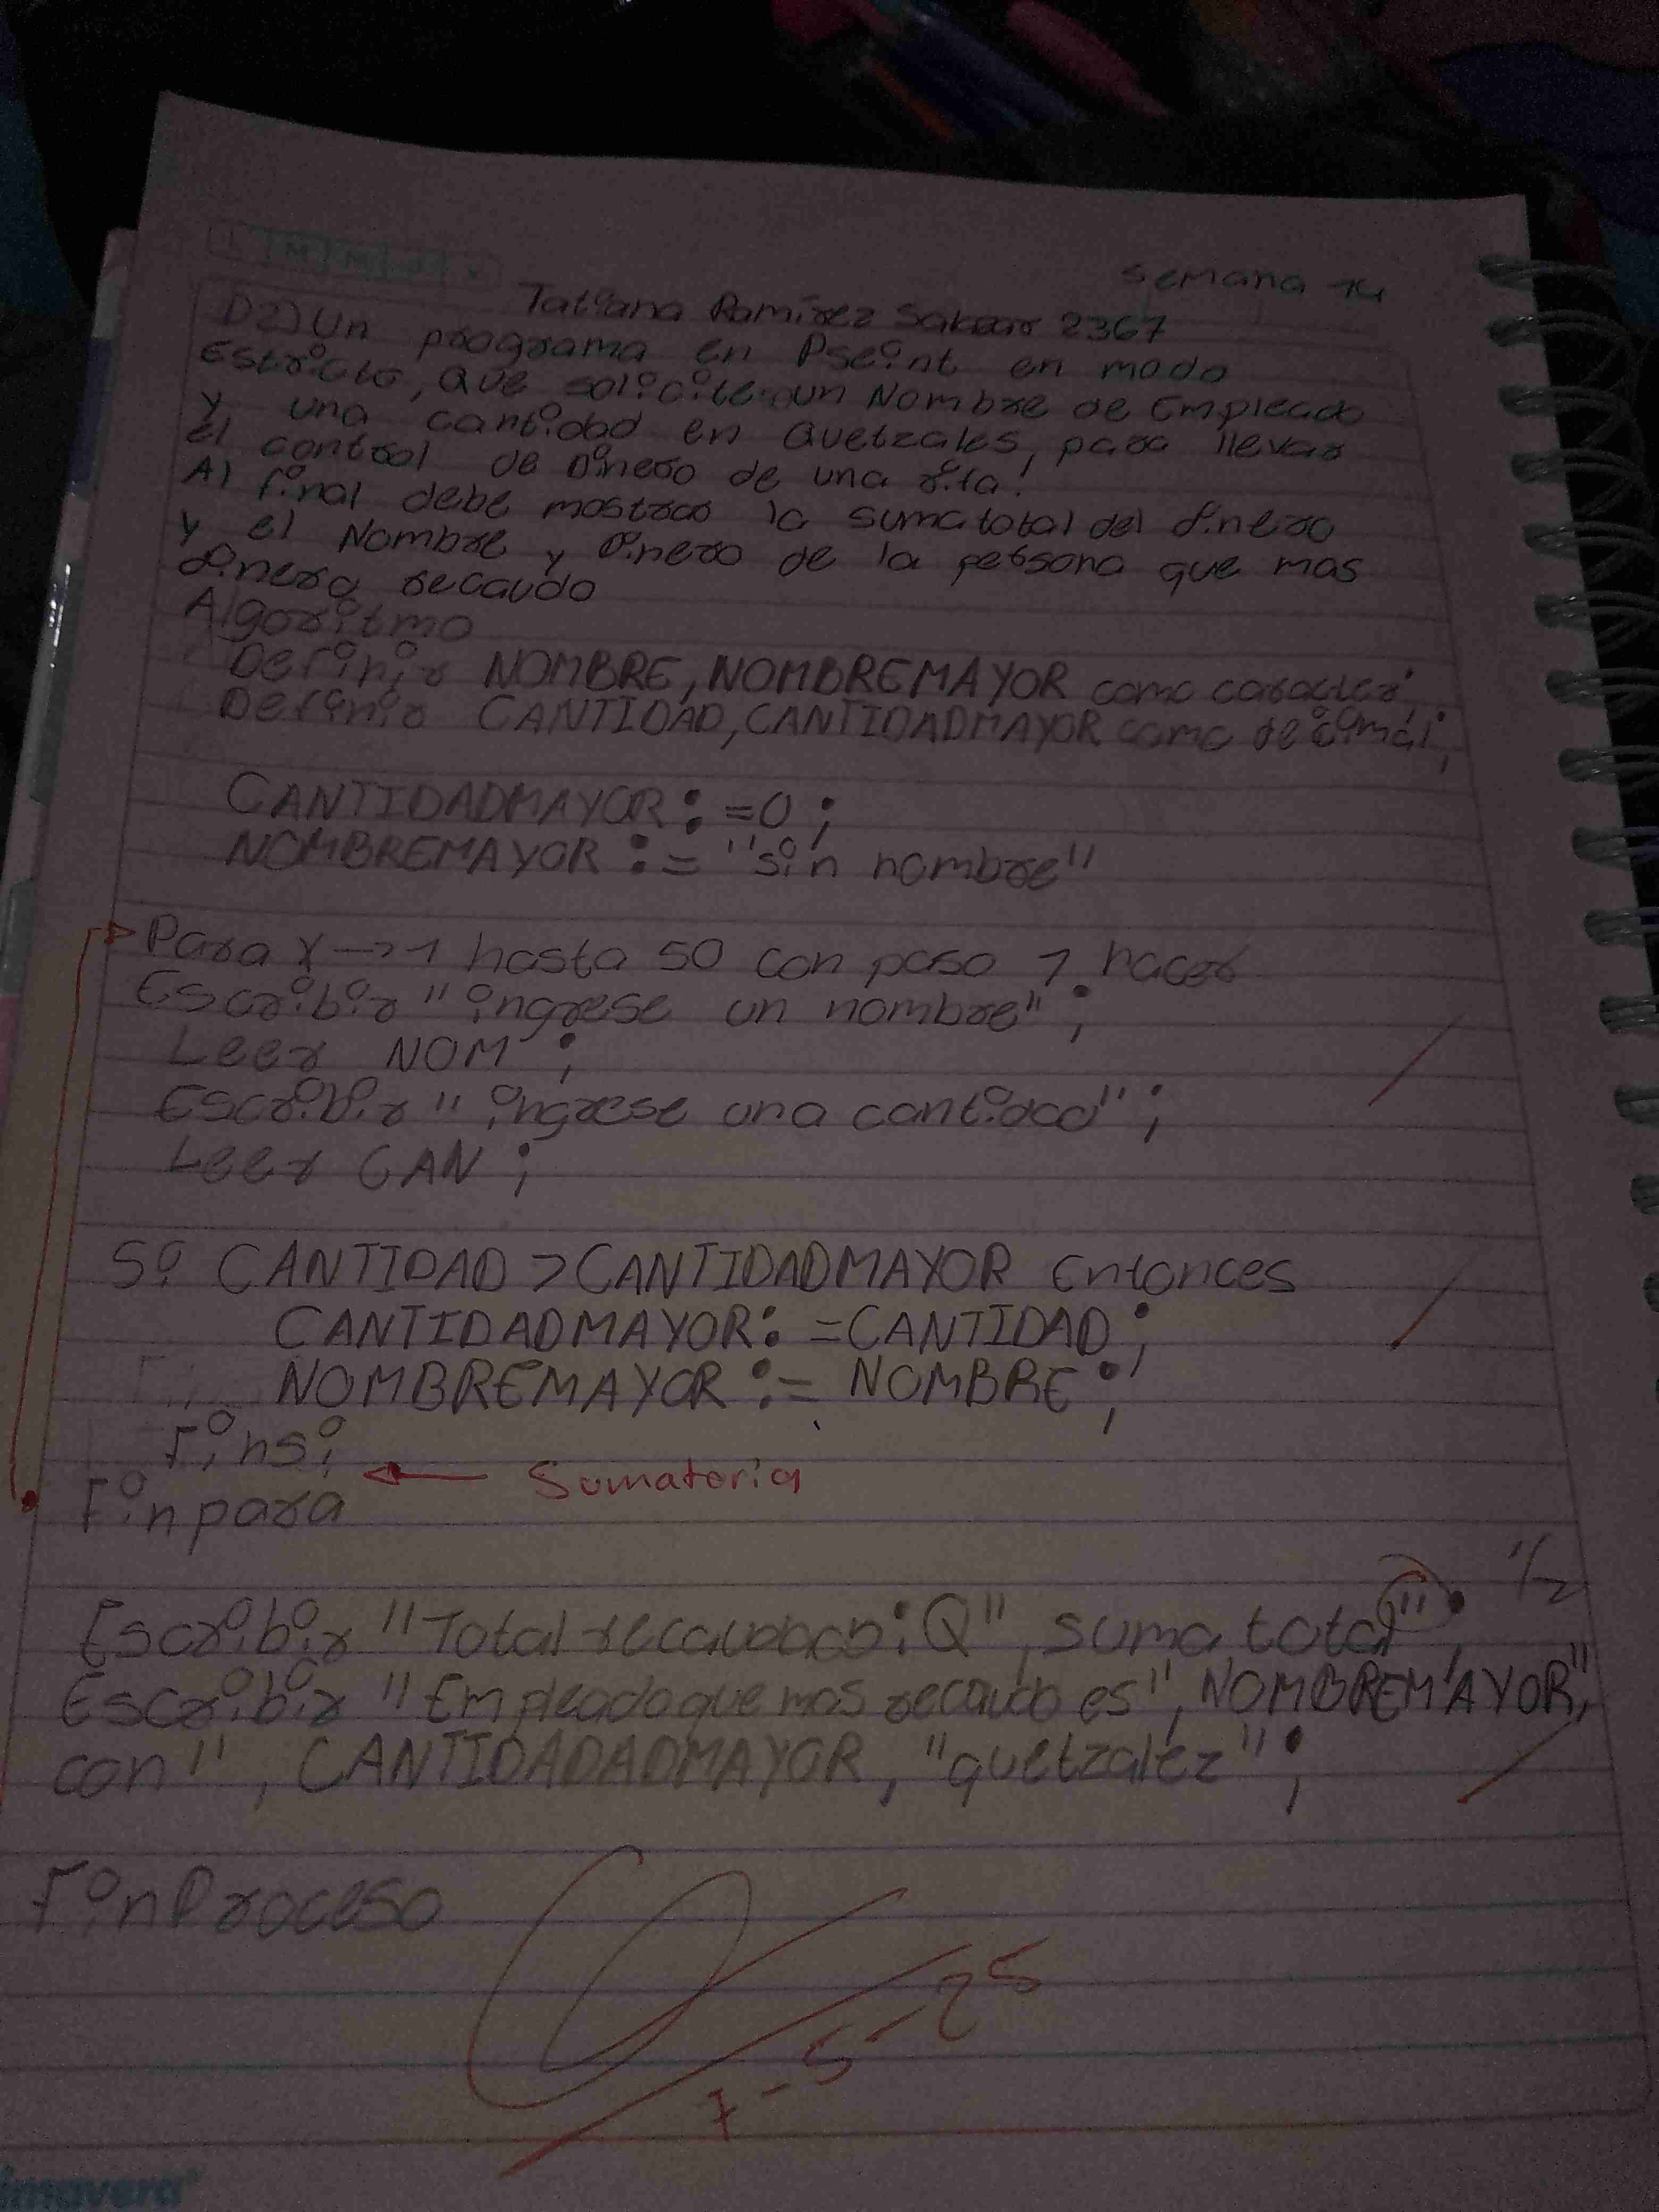 L M M J V
semana 14
Tatiana Ramírez 2367
D2) Un programa en Pseint en modo
Estricto, Que solicite un Nombre de Empleado
y una cantidad en Quetzales, para llevar
el control de Dinero de una rifa.
Al final debe mostrar la suma total del dinero
y el Nombre y Dinero de la persona que mas
dinero recaudo
Algoritmo
Definir NOMBRE, NOMBREMAYOR como caracter;
Definir CANTIDAD, CANTIDADMAYOR como decimal;
CANTIDADMAYOR := 0 ;
NOMBREMAYOR := "sin nombre"
Para X → 1 hasta 50 con paso 1 hacer
Escribir "ingrese un nombre" ;
Leer NOM ;
Escribir "ingrese una cantidad" ;
Leer CAN ;
Si CANTIDAD > CANTIDADMAYOR Entonces
CANTIDADMAYOR := CANTIDAD ;
NOMBREMAYOR := NOMBRE ;
Finsi
← Sumatoria
Finpara
1/2
Escribir "Total recaudado: Q", suma total" ;
Escribir "Empleado que mas recaudo es", NOMBREMAYOR,"
con", CANTIDADADMAYOR, "quetzalez" ;
FinProceso
7-5-25